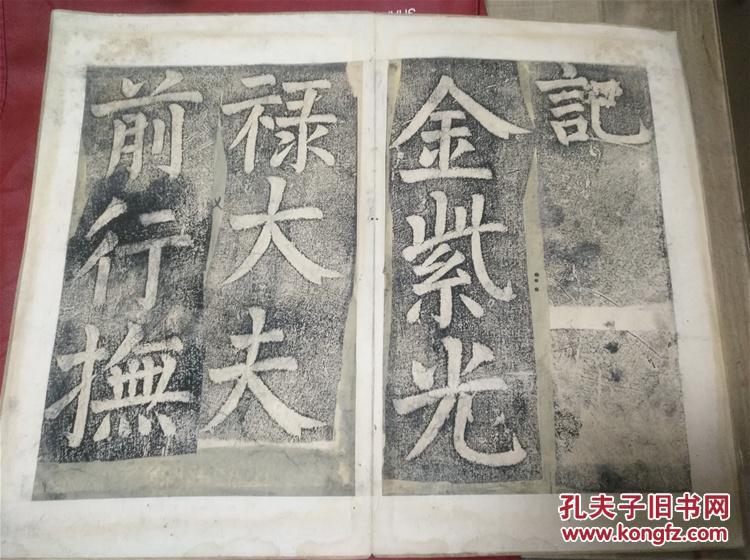 記
金紫光
禄大夫
前行撫
孔夫子旧书网
www.kongfz.com